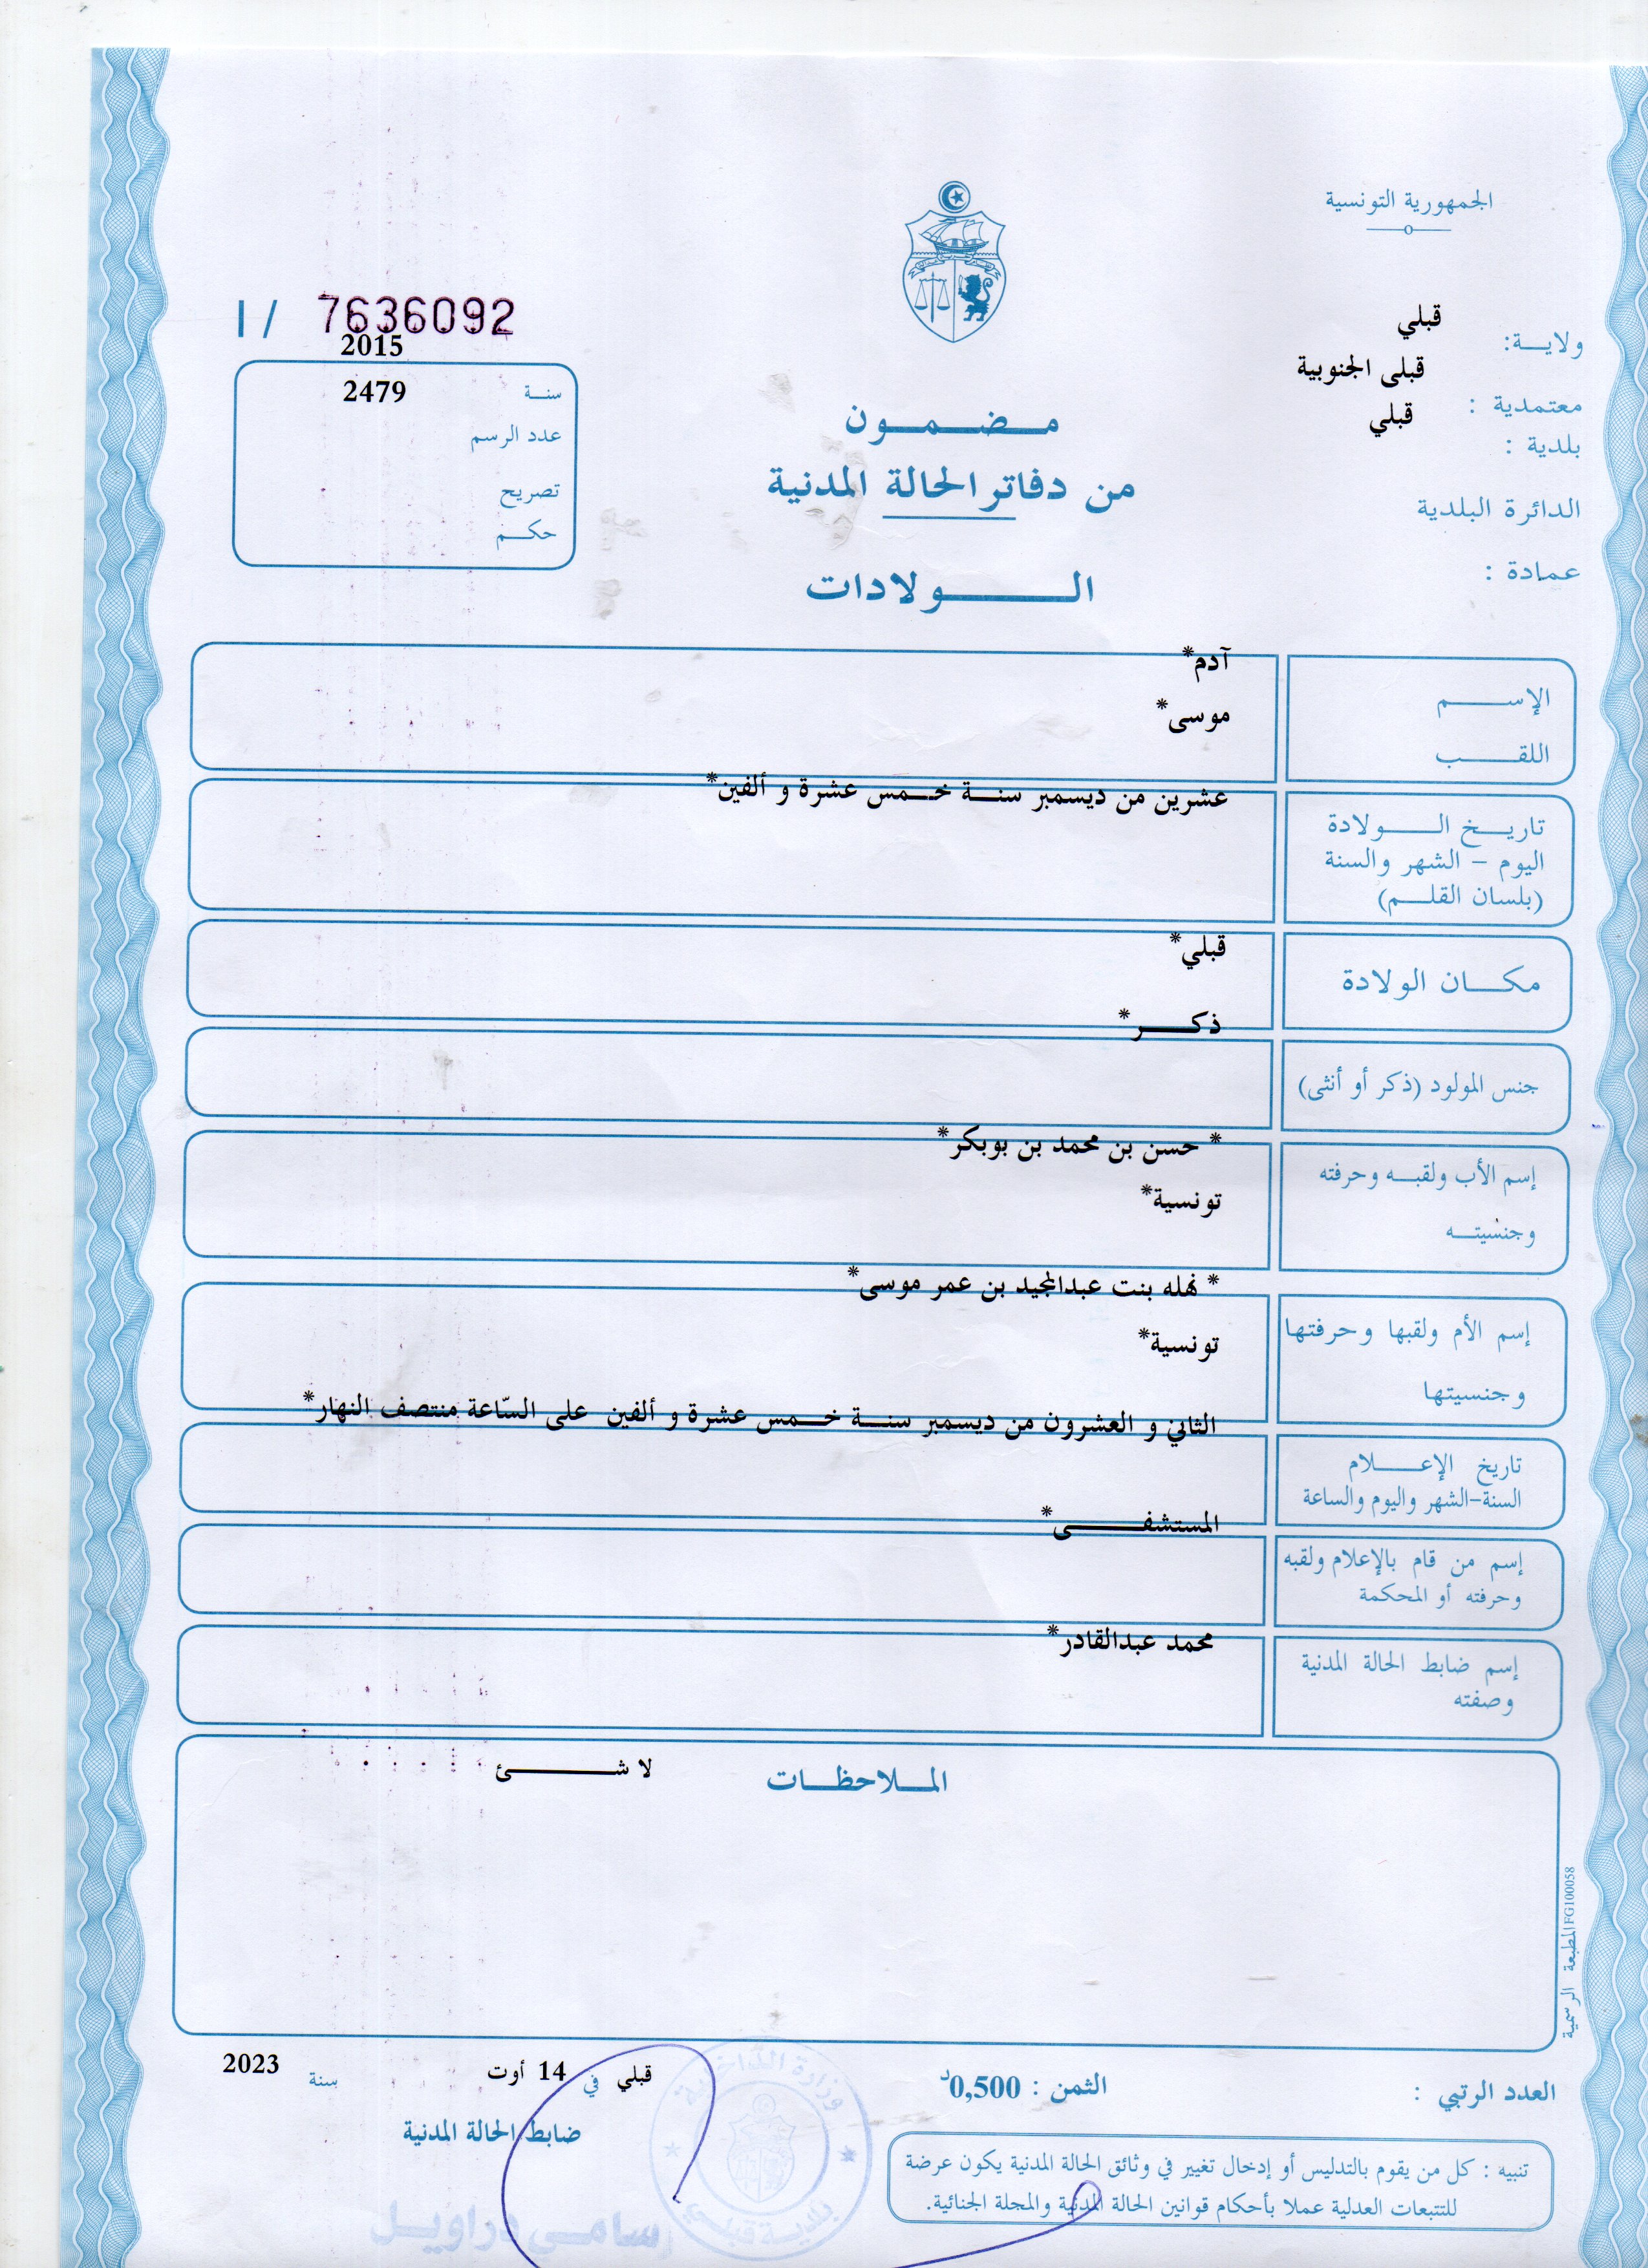 الجمهورية التونسية
I / 7636092
ولاية: قبلي
معتمدية : قبلى الجنوبية
بلدية : قبلي
الدائرة البلدية
عمادة :
2015
سنة 2479
عدد الرسم
تصريح
حكم
مضمون
من دفاتر الحالة المدنية
الولادات
الإسم آدم*
اللقب موسى*
تاريخ الولادة عشرين من ديسمبر سنة خمس عشرة و ألفين*
اليوم - الشهر والسنة
(بلسان القلم)
مكان الولادة قبلي*
جنس المولود (ذكر أو أنثى) ذكر*
إسم الأب ولقبه وحرفته * حسن بن محمد بن بوبكر*
وجنسيته تونسية*
إسم الأم ولقبها وحرفتها * نهله بنت عبدالمجيد بن عمر موسى*
وجنسيتها تونسية*
تاريخ الإعلام الثاني و العشرون من ديسمبر سنة خمس عشرة و ألفين على السّاعة منتصف النهار*
السنة-الشهر واليوم والساعة
إسم من قام بالإعلام ولقبه المستشفى*
وحرفته أو المحكمة
إسم ضابط الحالة المدنية محمد عبدالقادر*
وصفته
الملاحظات لا شئ
المطبعة الرسمية FG100058
العدد الرتبي :
الثمن : 0,500د
قبلي في 14 أوت سنة 2023
ضابط الحالة المدنية
تنبيه : كل من يقوم بالتدليس أو إدخال تغيير في وثائق الحالة المدنية يكون عرضة
للتتبعات العدلية عملا بأحكام قوانين الحالة المدنية والمجلة الجنائية.
وزارة الداخلية
بلدية قبلي
سامي دراويل